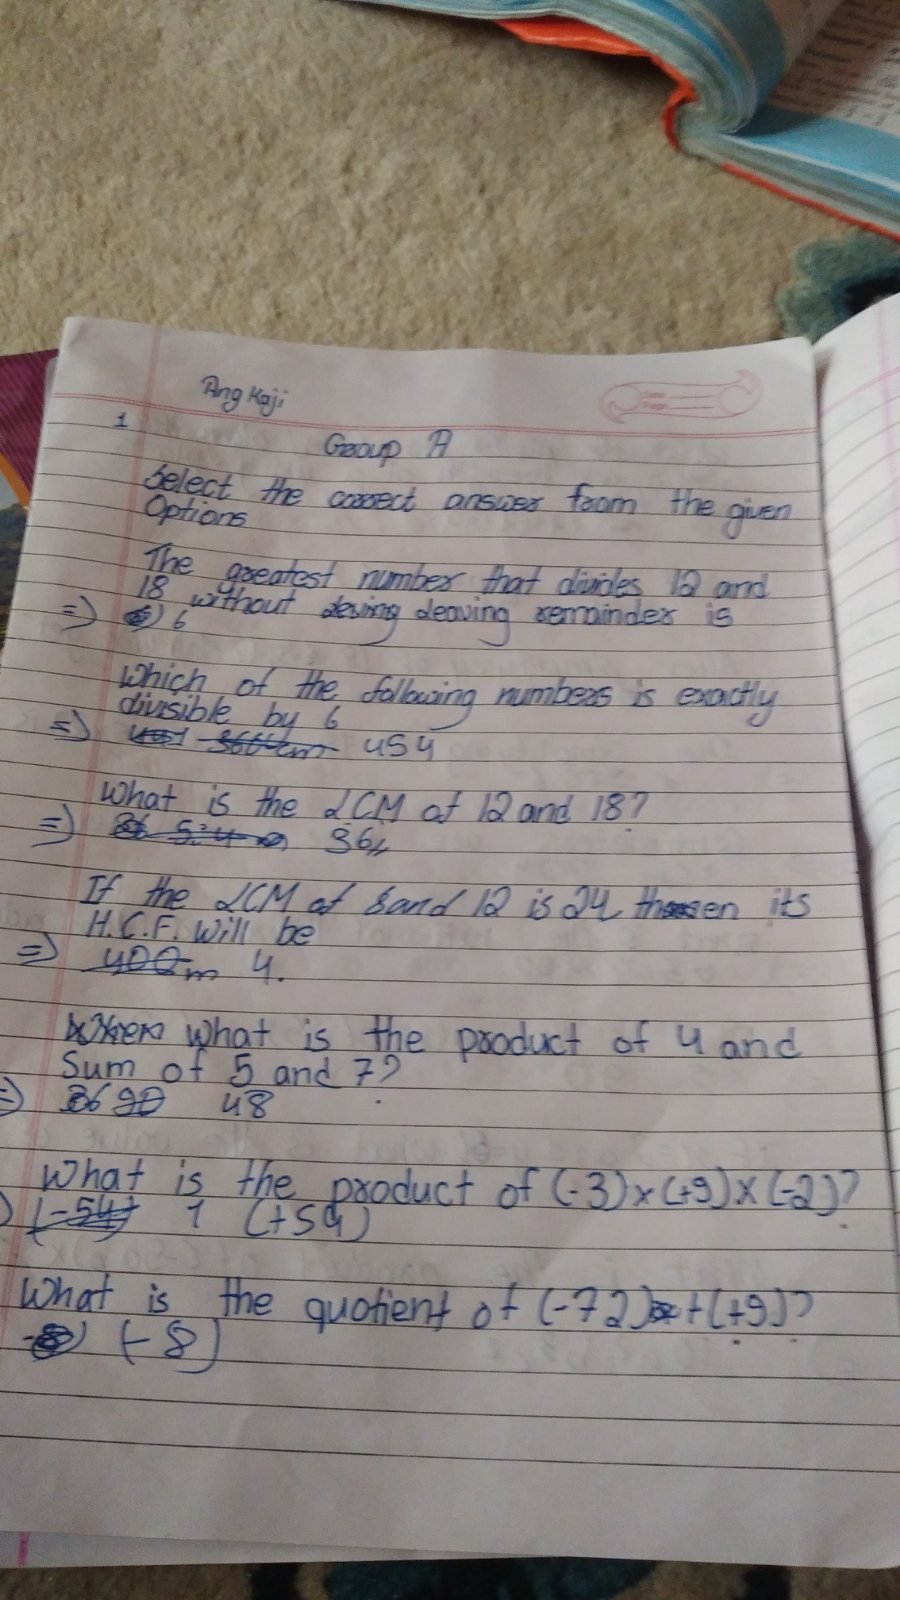 Ang Kaji
1
Group A
Select the correct answer from the given
Options
The greatest number that divides 12 and
18 without leaving remainder is
=) 6
Which of the following numbers is exactly
divisible by 6
=) 454
What is the LCM of 12 and 18?
=) 36
If the LCM of 8 and 12 is 24 then its
H.C.F. will be
=) 4.
What is the product of 4 and
Sum of 5 and 7?
=) 48
What is the product of (-3)×(+9)×(-2)?
) 1 (+54)
What is the quotient of (-72) ÷ (+9)?
(-8)